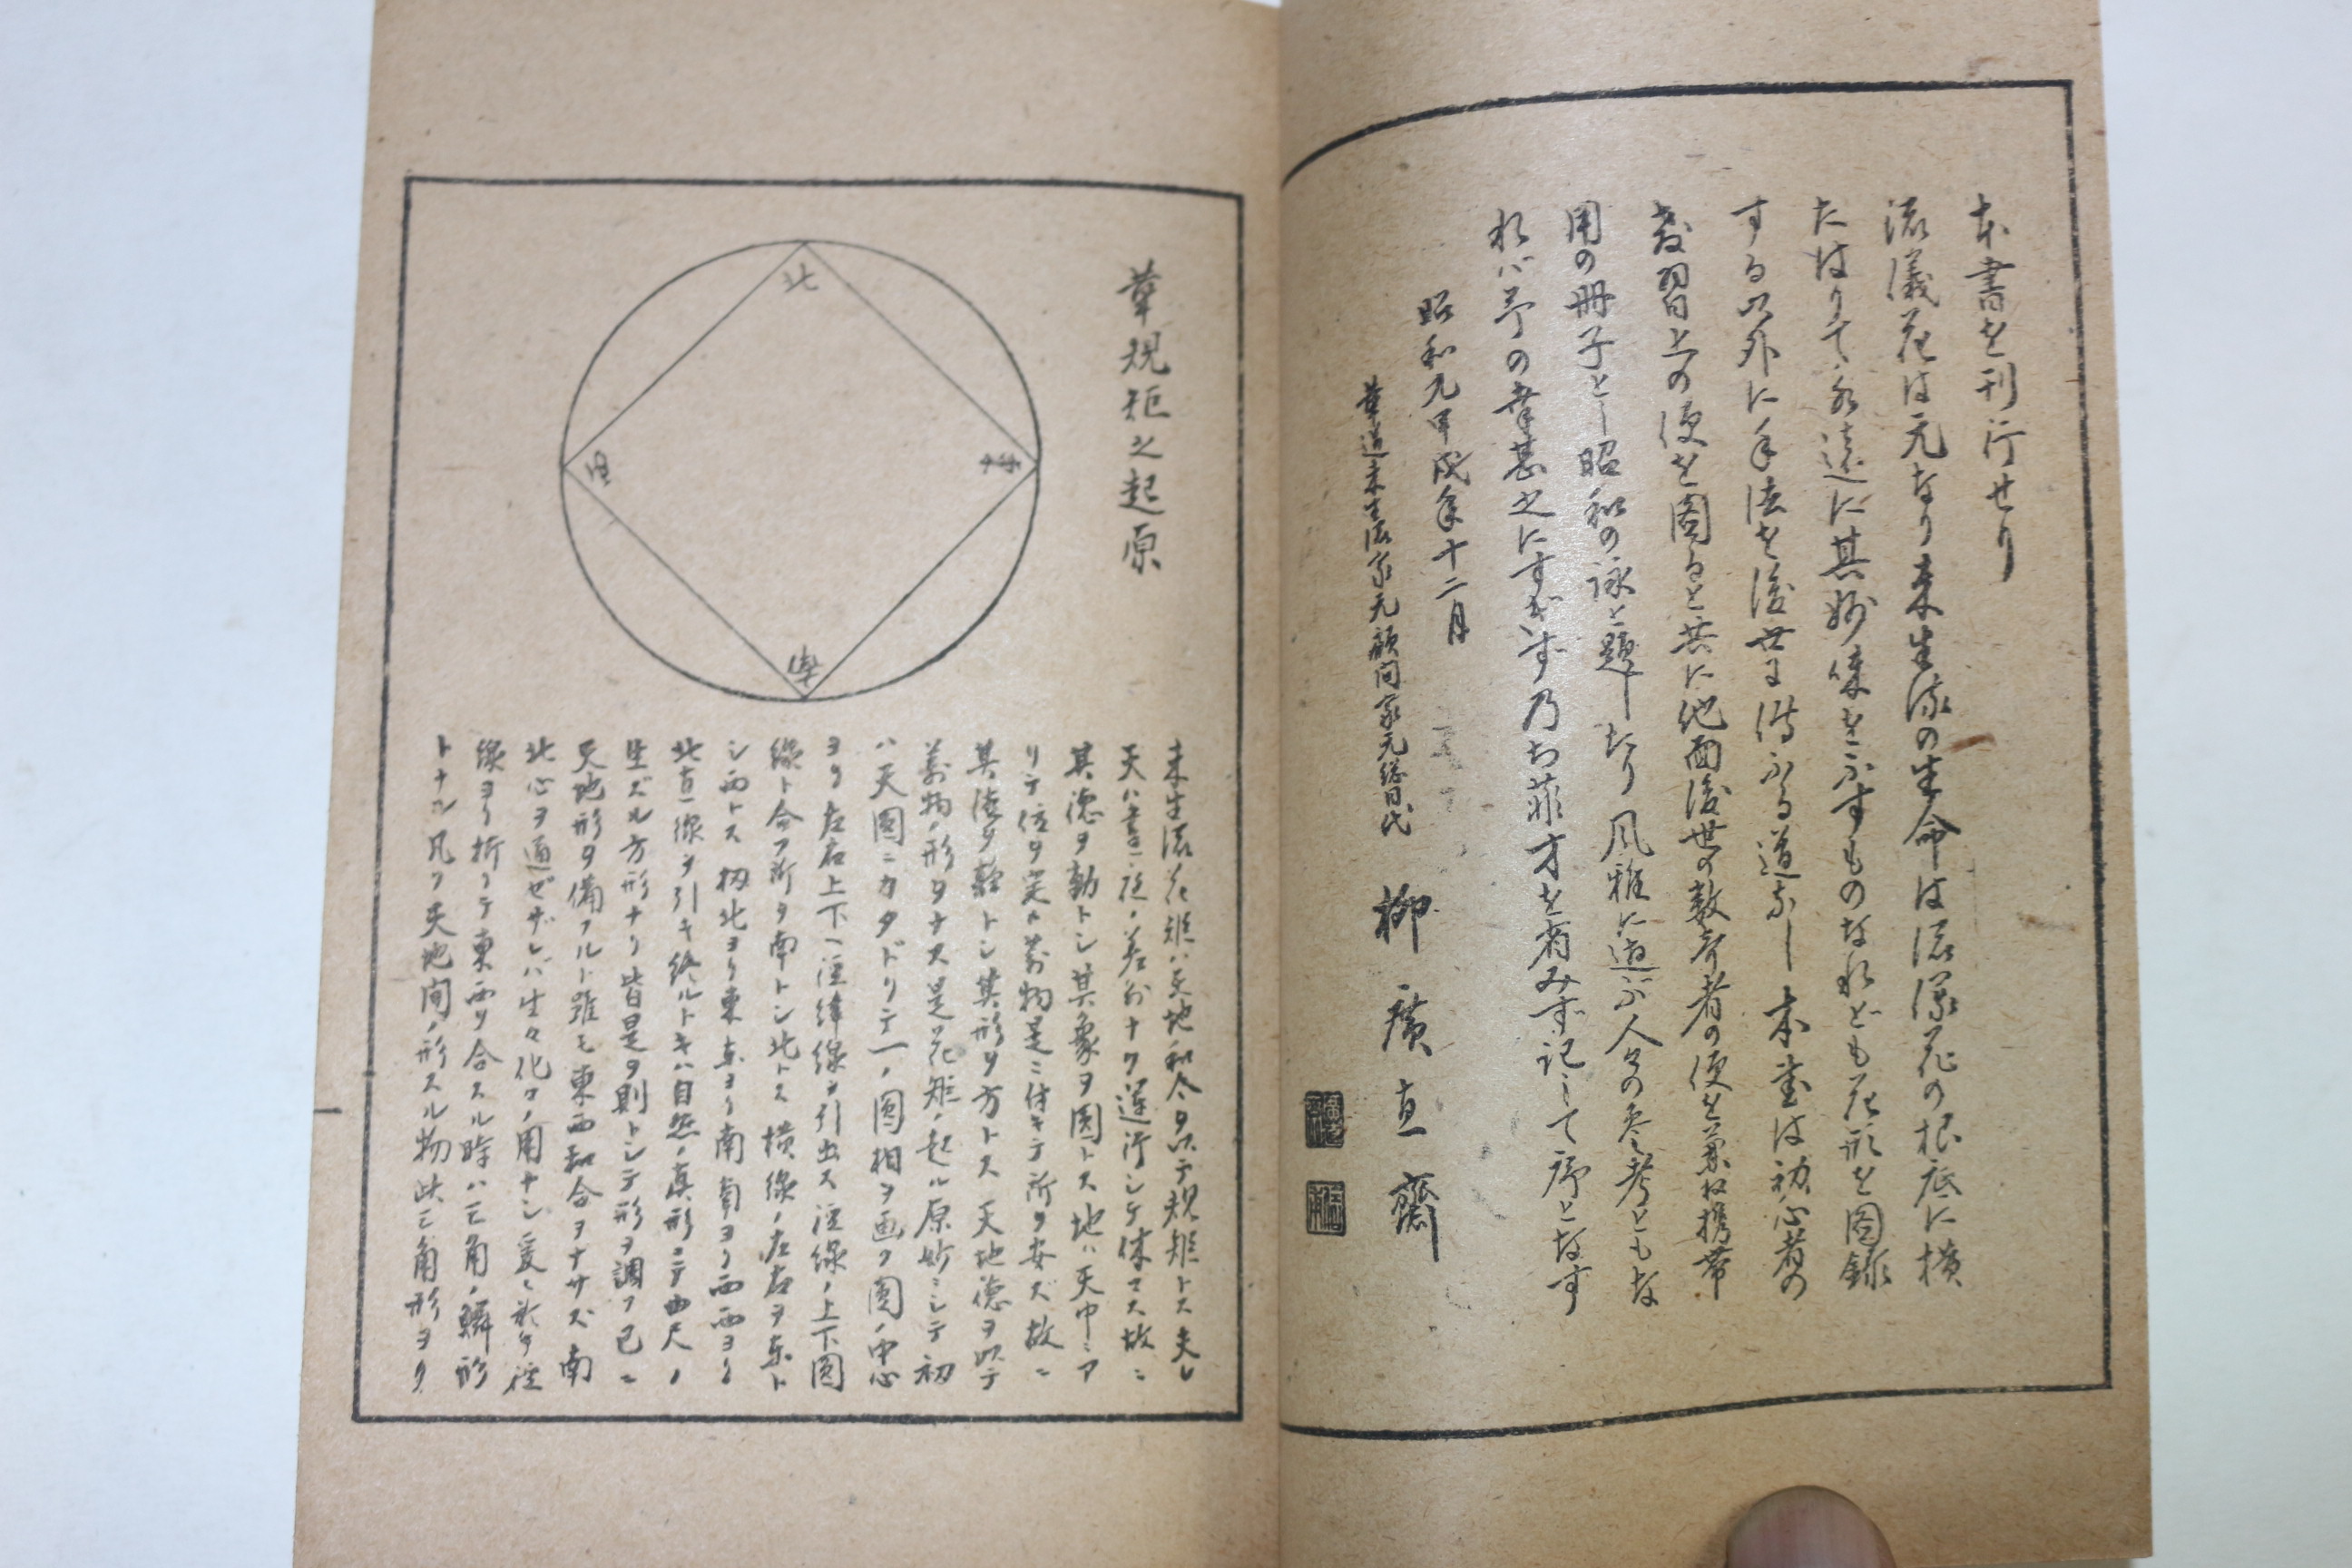 本書を刊行せり
流儀花は元なり未生流の生命は流儀花の根底に横
たはりて永遠に其妙味を示すものなれども花形を図録
する以外に手法を後世に伝ふる道なし本書は初心者の
教習上の便を図ると共に他面後世の数寄者の便を兼ね携帯
用の冊子とし昭和の詠と題したり風雅に遊ぶ人々の参考ともな
れバ予の幸甚之にすぎず乃ち菲才を省みず記して序となす
昭和九甲戌年十二月
華道未生流家元顧問家元総目代
柳 廣直齋
華規矩之起原
北
西
南
未生流ノ花矩ハ天地和合ヲ以テ規矩トス夫レ
天ハ昼夜ノ差別ナク運行シテ休マス故ニ
其徳ヲ動トシ其象ヲ圓トス地ハ天中ニア
リテ位ヲ定メ萬物是ニ付キテ所ヲ安ズ故ニ
其徳ヲ静トシ其形ヲ方トス天地徳ヲ以テ
萬物ノ形ヲナス是花矩ノ起ル原妙ニシテ初
ハ天圓ニカタドリテ一ノ圓相ヲ画ク圓ノ中心
ヨリ左右上下ヘ経緯線ヲ引出ス経線ノ上下圓
線ト合フ所ヲ南トシ北トス横線ノ左右ヲ東ト
シ西トス扨北ヨリ東東ヨリ南南ヨリ西西ヨリ
北直線ヲ引キ終ルトキハ自然ノ真形ニテ曲尺ノ
生ズル方形ナリ皆是ヲ則トシテ形ヲ調フ已ニ
天地形ヲ備フルト雖モ東西和合ヲナサズ南
北心ヲ通ゼザレバ生々化々ノ用ナシ爰ニ於テ経
線ヨリ折リテ東西ヲ合スル時ハ三角ノ鱗形
トナル凡ソ天地間ノ形スル物此三角形ヨリ